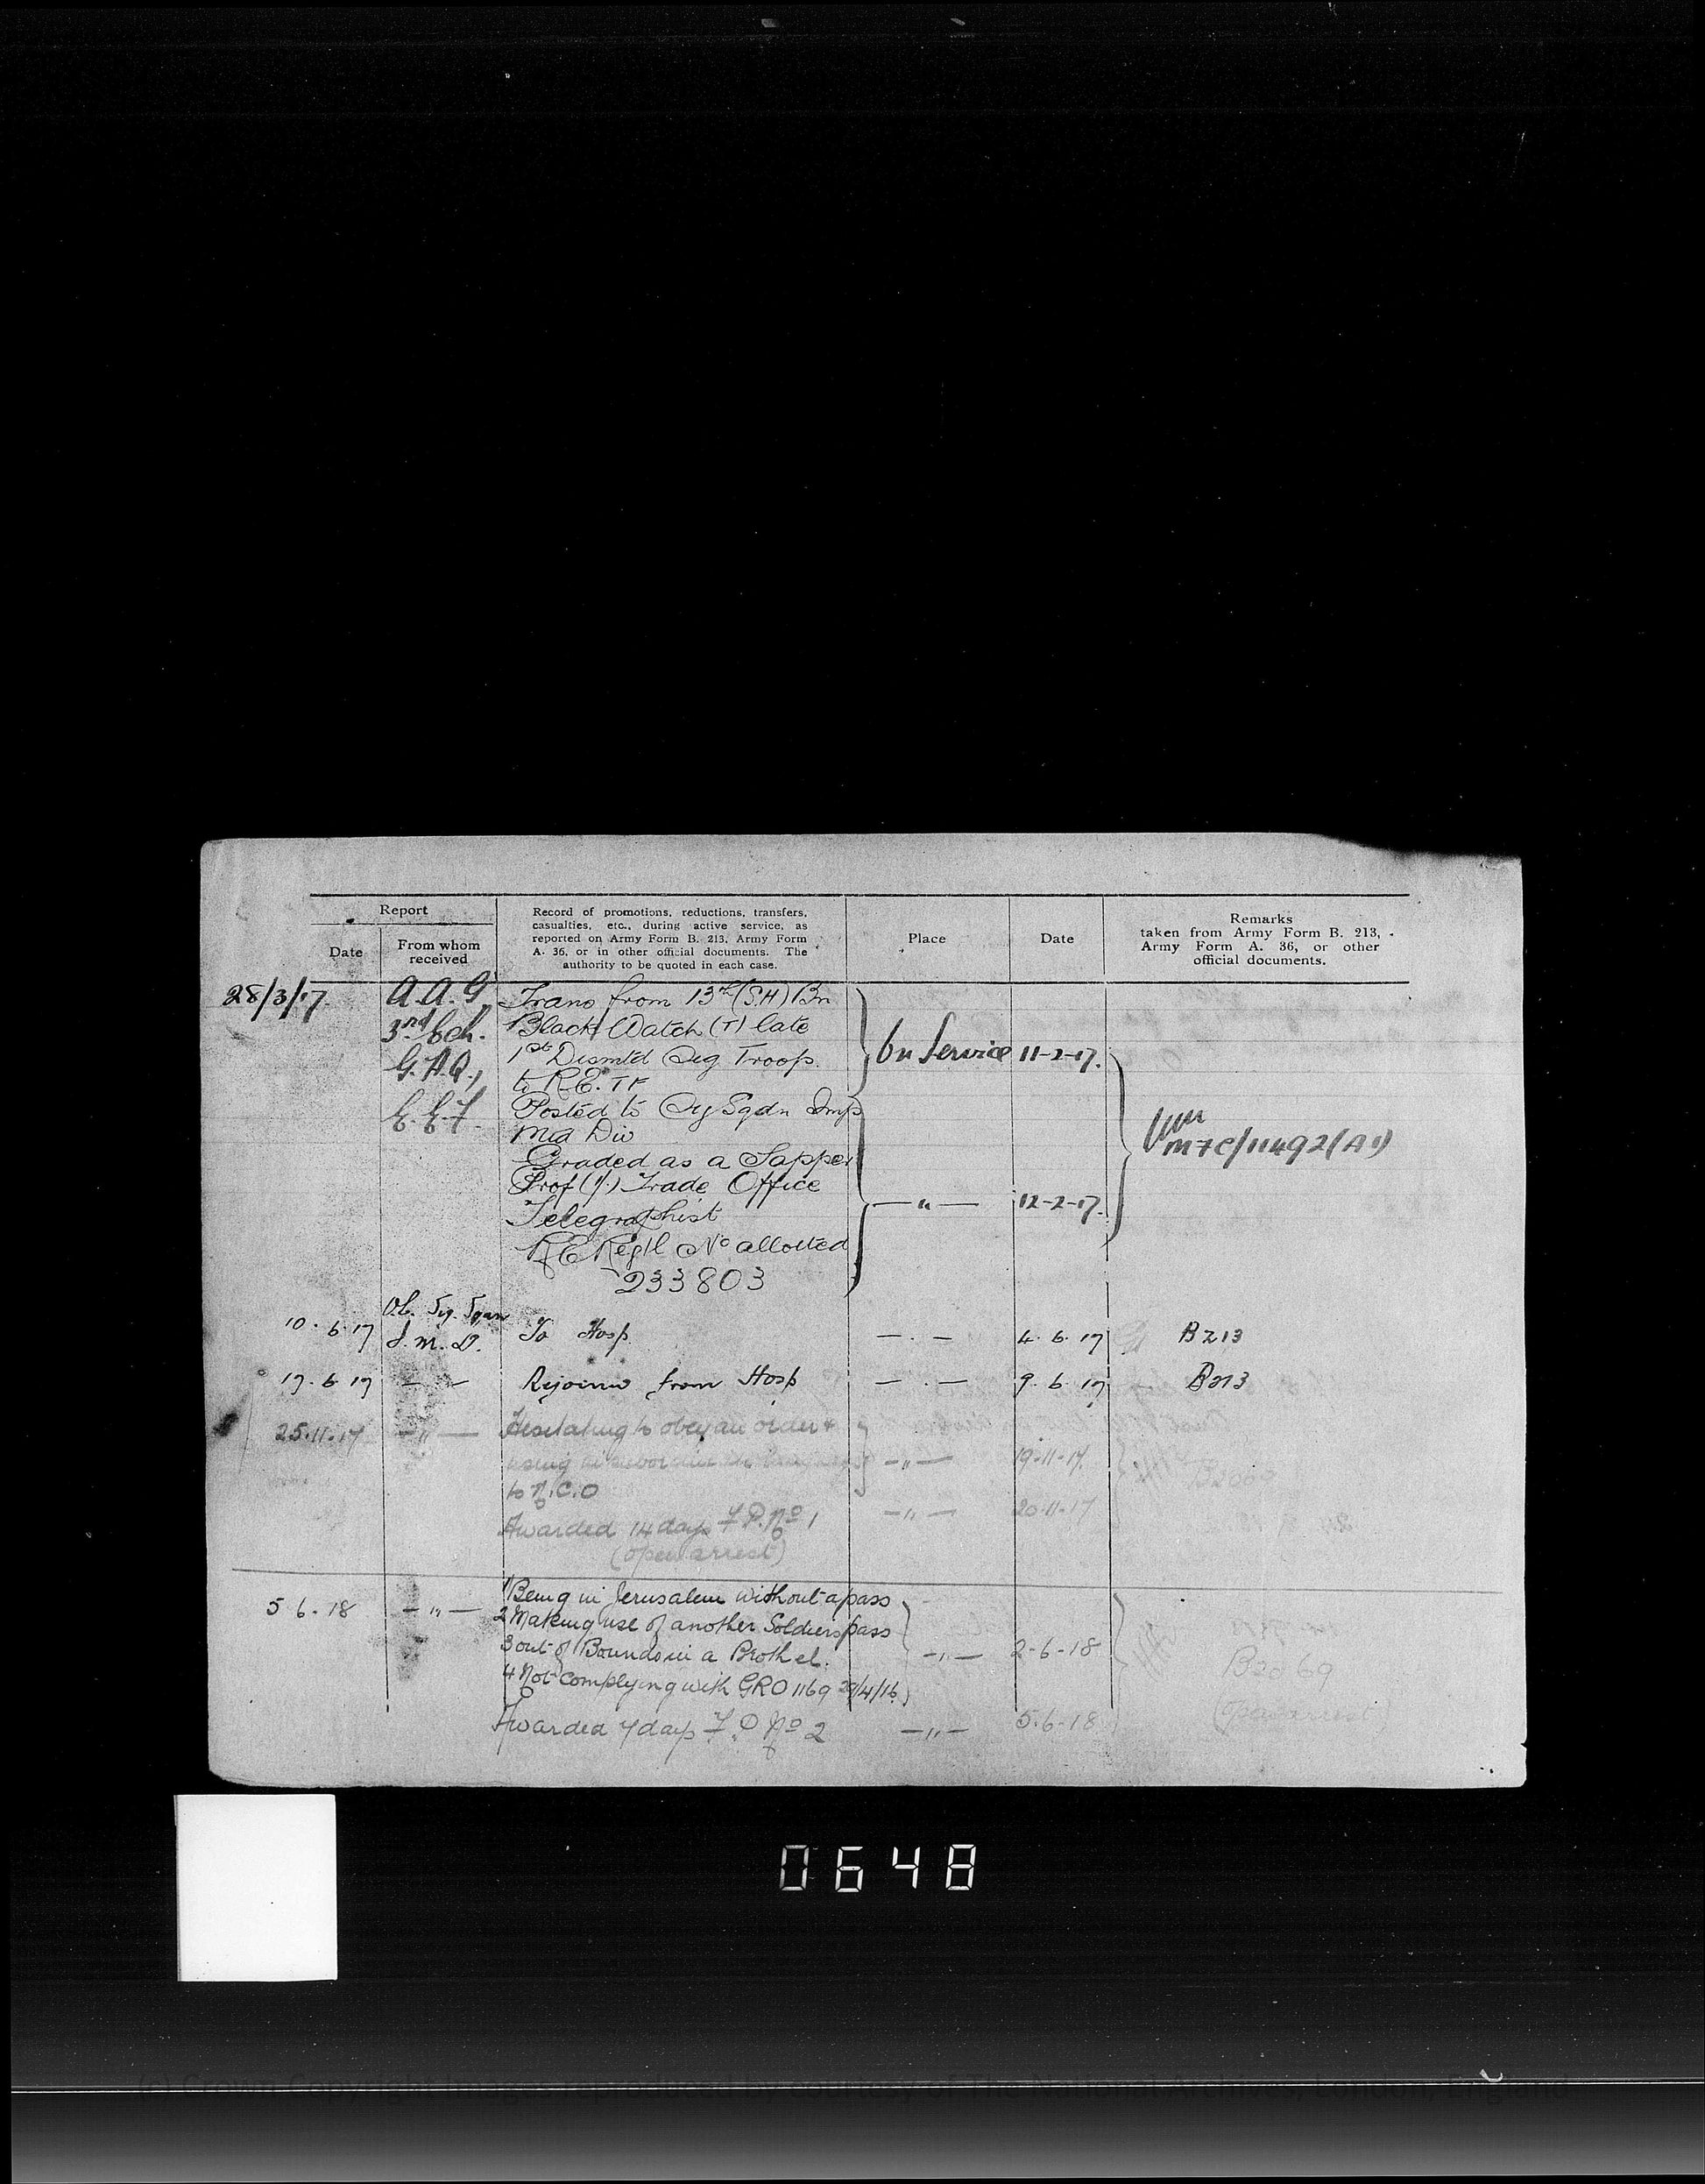 Report
Date
From whom received
Record of promotions, reductions, transfers,
casualties, etc., during active service, as
reported on Army Form B. 213, Army Form
A. 36, or in other official documents. The
authority to be quoted in each case.
Place
Date
Remarks
taken from Army Form B. 213,
Army Form A. 36, or other
official documents.
28/3/17.
A.A.G,
3rd Ech.
G.H.Q.,
E.E.F.
Trans from 13th (S.H) Bn
Black Watch (T) late
1st Dismtd Sig Troop.
to R.E. TF
On Service 11-2-17.
Posted to Sig Sqdn Imp
Mtd Div
Graded as a Sapper
Prof (/.) Trade Office
Telegraphist
R E Regtl No allotted
233803
— " — 12-2-17.
M7C/11492(A1)
10.6.17 O.C. Sig. Sqn I.M.D. To Hosp. — . — 4.6.17 B213
17.6.17 — — Rejoined from Hosp — . — 9.6.17 B213
25.11.17 — " — Hesitating to obey an order &
using insubordinate language — " — 19-11-17.
to N.C.O
Awarded 14 days F.P. No 1 — " — 20-11-17
(open arrest)
5 6.18 — " — 1 Being in Jerusalem without a pass
2 Making use of another Soldiers pass
3 out of Bounds in a Brothel. — " — 2-6-18
4 Not complying with GRO 1169 29/4/16
B2069
(open arrest)
Awarded 7 days F.P No 2 — " — 5.6-18
0648
(c) Crown Copyright Images reproduced by courtesy of The National Archives, London, England